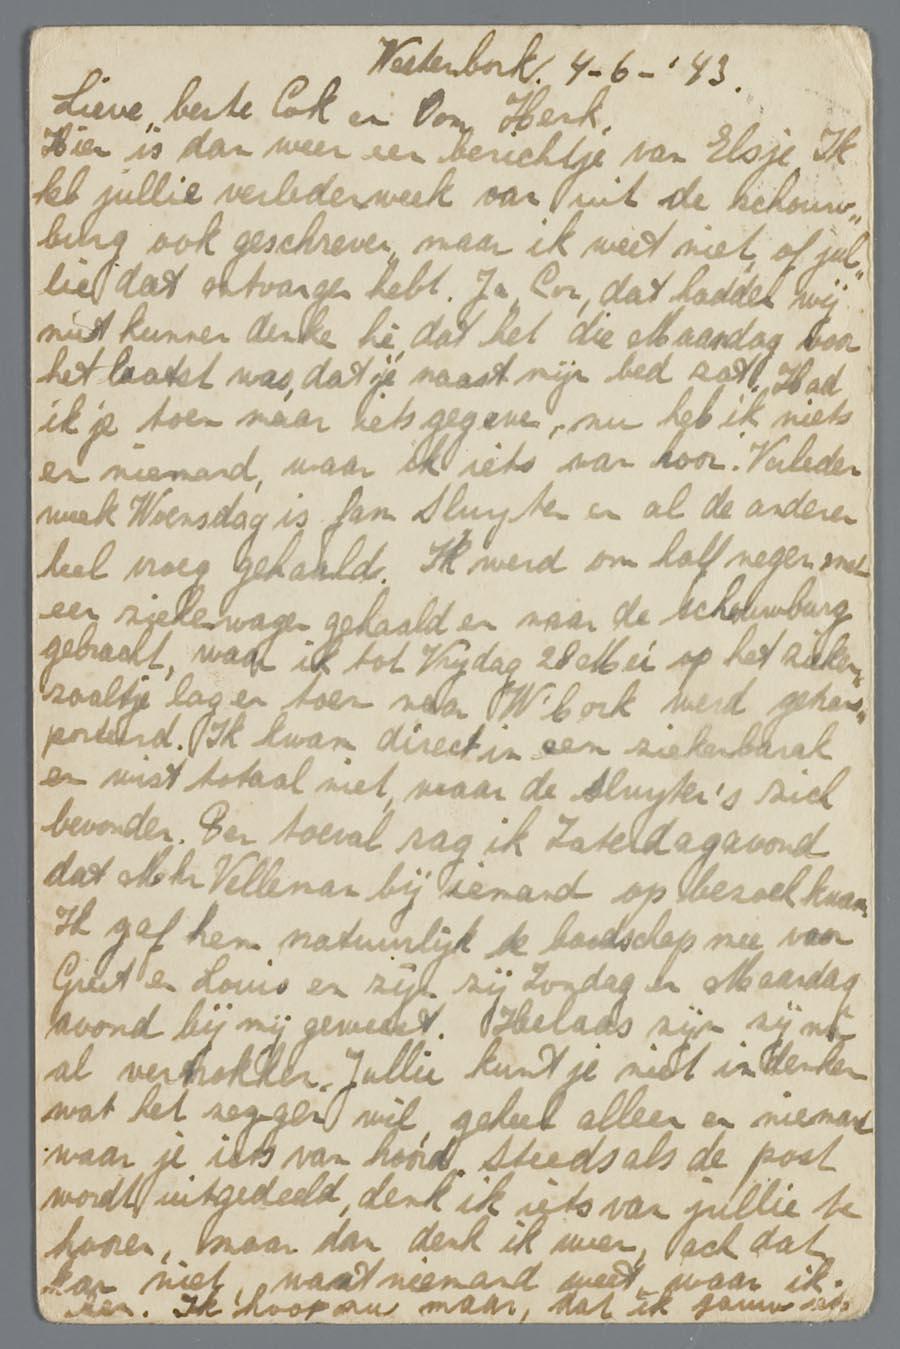 Westenbork. 4-6-'43.
Lieve, beste Cok en Oom Henk,
Hier is dan weer een berichtje van Elsje Ik
heb jullie verledenweek van uit de schouw„
burg ook geschreven, maar ik weet niet, of jul„
lie dat ontvangen hebt. Ja, Cor, dat hadden wij
niet kunnen denke hè, dat het die Maandag voor
het laatst was, dat je naast mijn bed zat! Had
ik je toen maar iets gegeven, nu heb ik niets
en niemand, waar ik iets van hoor. Verleden
week Woensdag is Jam Sluyter en al de anderen
heel vroeg gehaald. Ik werd om half negen met
een ziekenwagen gehaald en naar de schouwburg
gebracht, waar ik tot Vrijdag 28 Mei op het zieken„
zaaltje lag en toen naar W'bork werd getrans„
porteerd. Ik kwam direct in een ziekenbarak
en wist totaal niet, waar de Sluyter's zich
bevonden. Per toeval zag ik Zaterdagavond
dat Mhr Velleman bij iemand op bezoek kwam.
Ik gaf hem natuurlijk de boodschap mee voor
Greet en Louis en zijn zij Zondag en Maandag
avond bij mij geweest. Helaas zijn zij nu
al vertrokken. Jullie kunt je niet in denken
wat het zeggen wil, geheel alleen en niemand
waar je iets van hoord. Steeds als de post
wordt uitgedeeld, denk ik iets van jullie te
hooren, maar dan denk ik weer, ach dat
kan niet, want niemand weet, waar ik
ben. Ik hoop nu maar, dat ik gauw